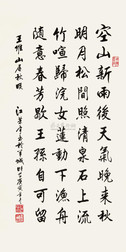 空山新雨後天氣晚来秋
明月松間照清泉石上流
竹喧歸浣女蓮動下漁舟
随意春芳歇王孫自可留
王維山居秋暝